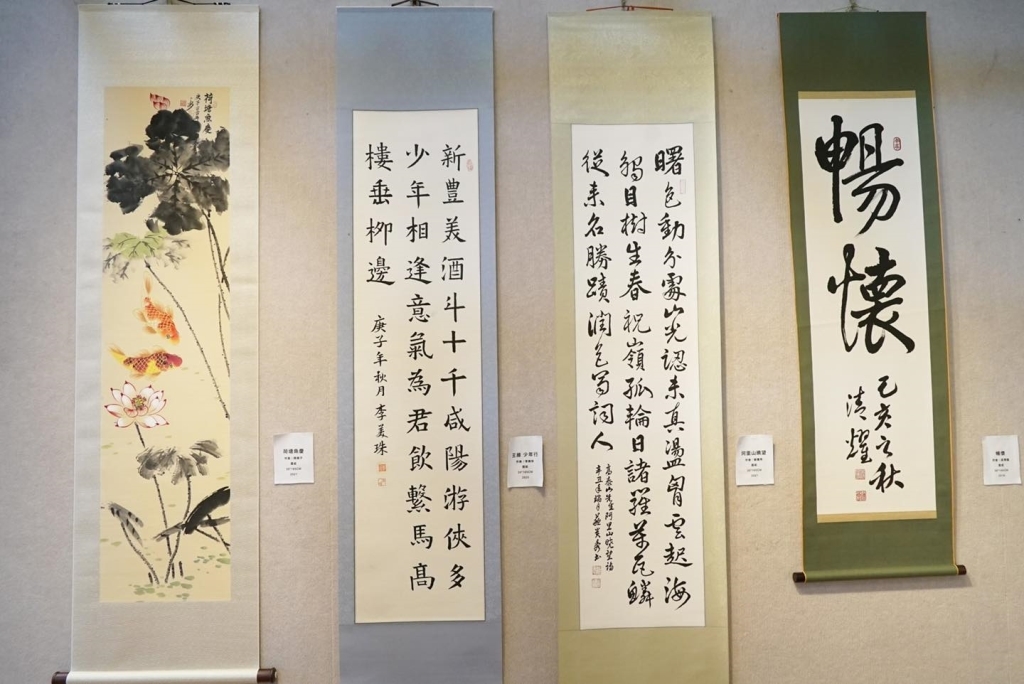 荷塘魚慶
新豐美酒斗十千咸陽游俠多
少年相逢意氣為君飲繫馬高
樓垂柳邊
庚子年秋月李美珠
曙色動分霧山光認未真盪胸雲起海
觸目樹生春祝嶺孤輪日諸羅萬瓦鱗
從來名勝蹟潤色茍詞人
暢懷
己亥之秋
清耀
荷塘魚慶
王維 少年行
阿里山曉望
暢懷